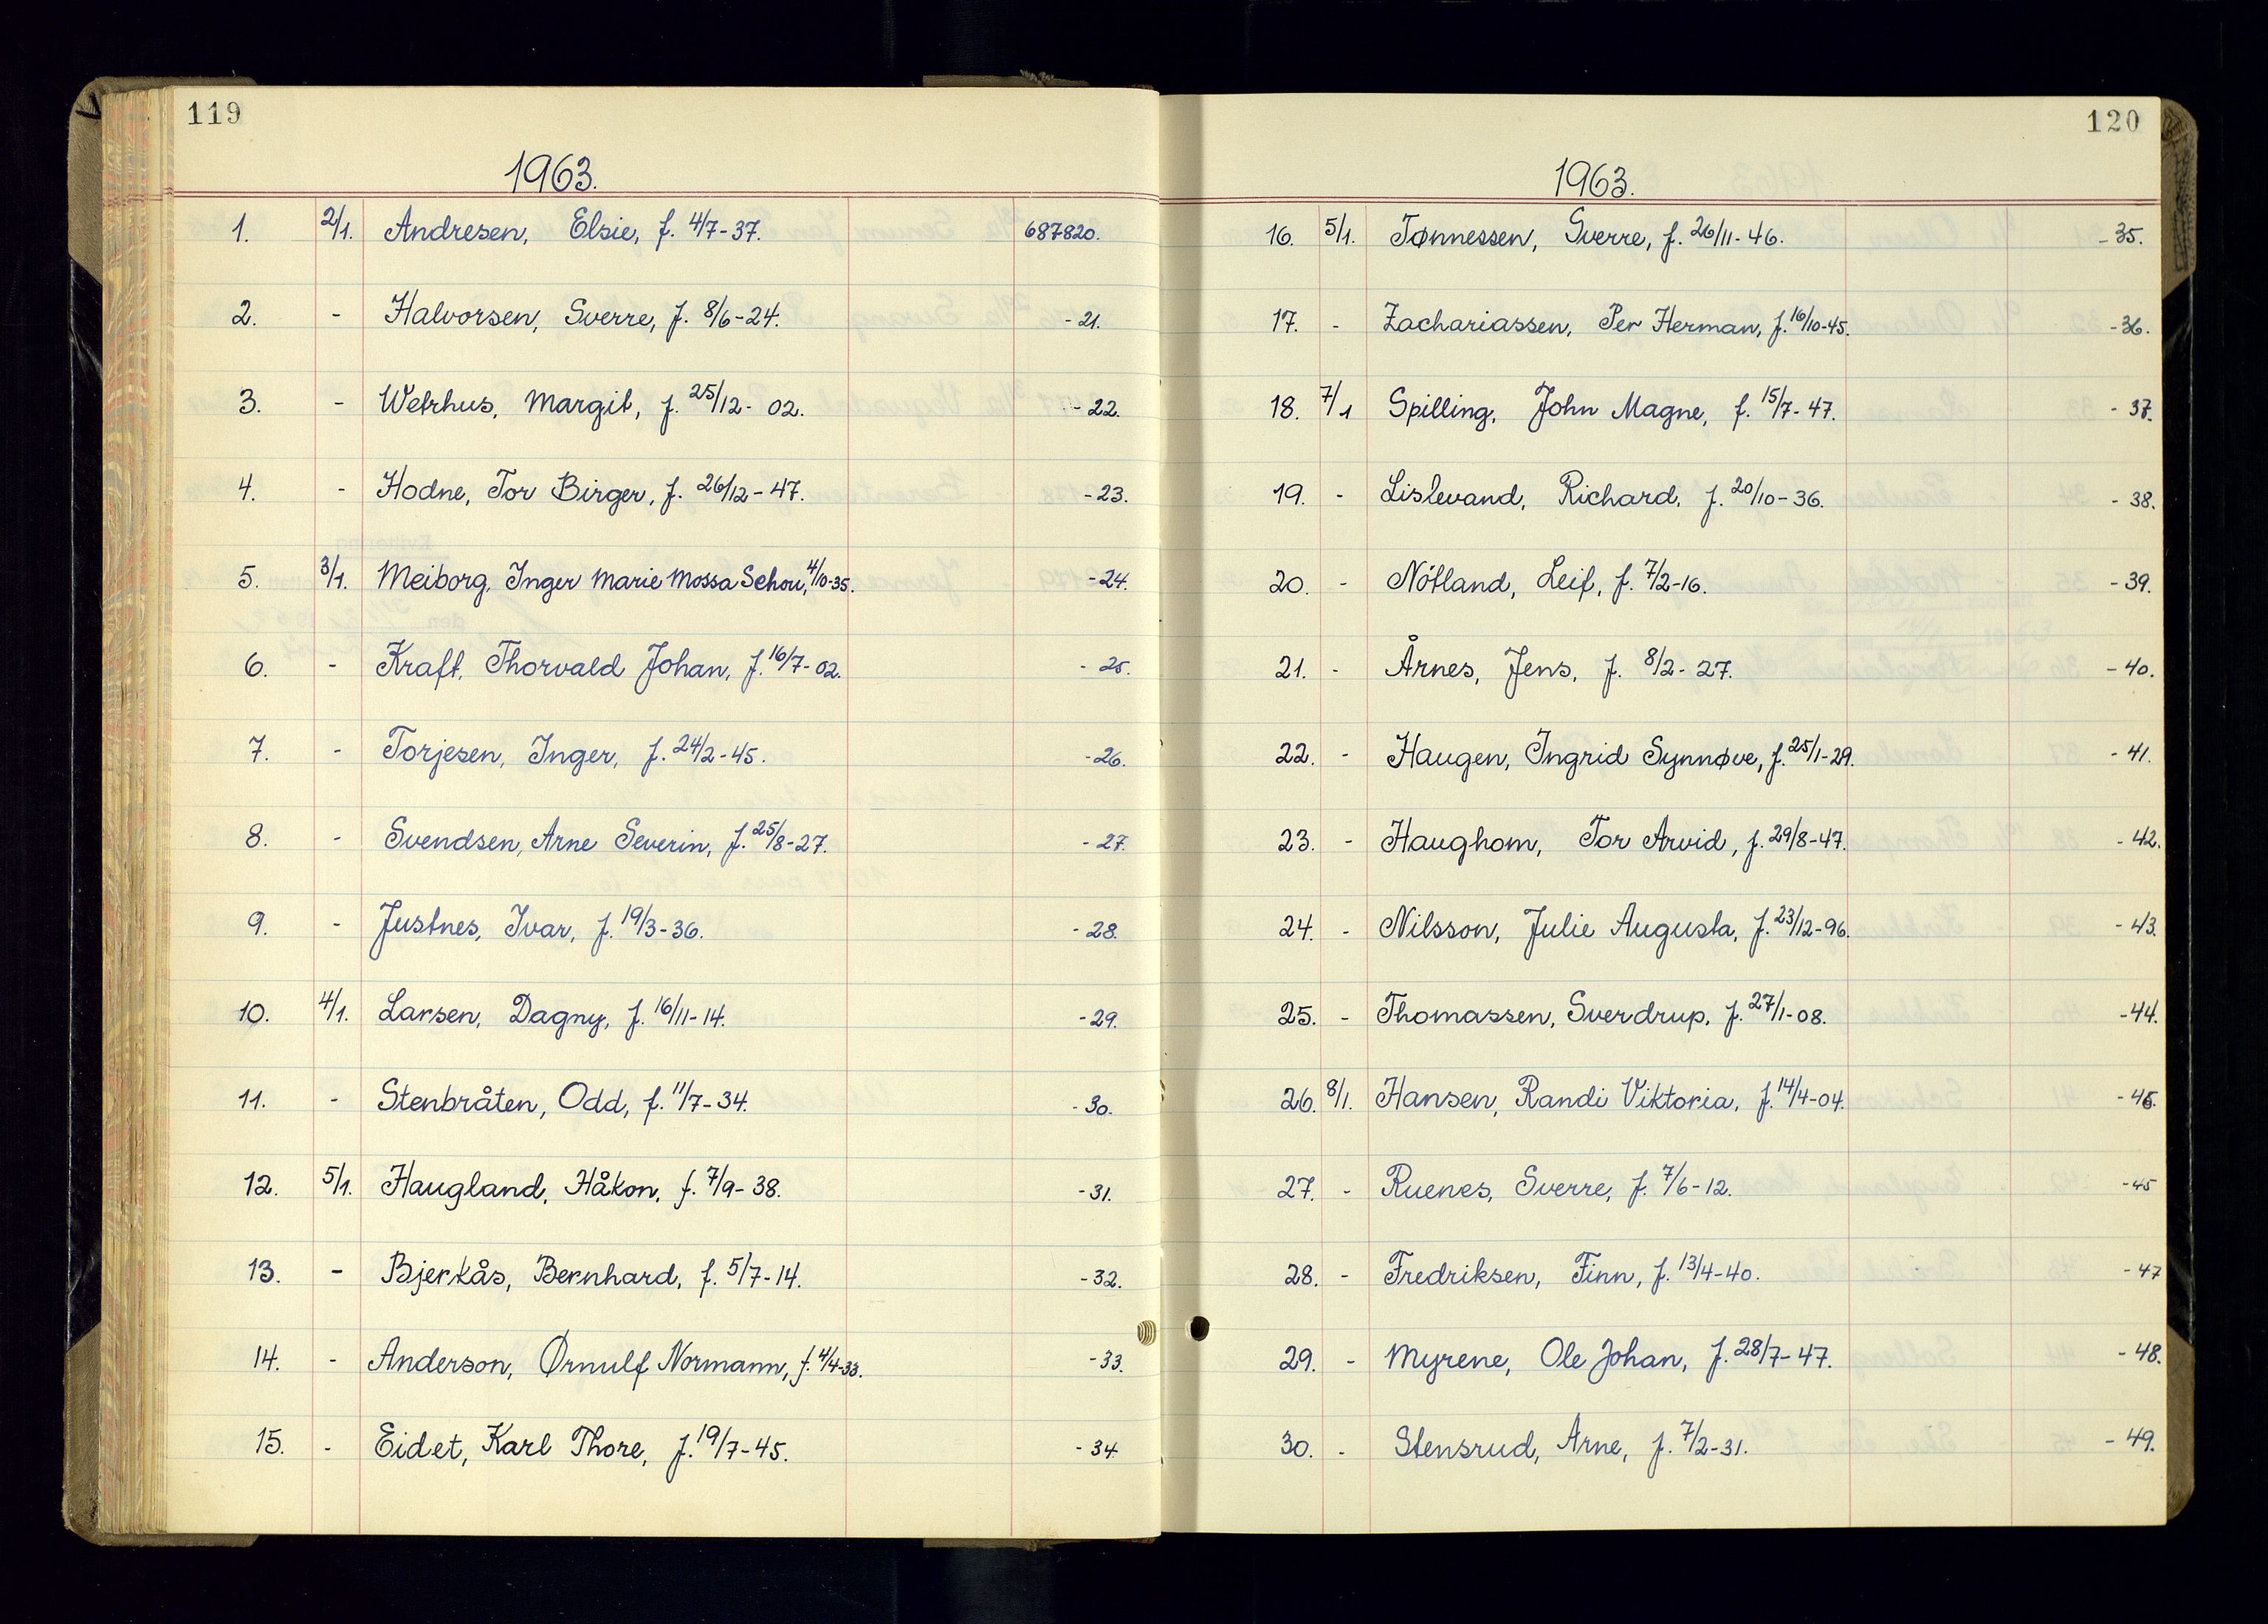 119
1963.
1. 2/1. Andresen, Elsie, f. 4/7-37. 687820.
2. - Halvorsen, Sverre, f. 8/6-24. -21.
3. - Wetrhus, Margit, f. 25/12-02. -22.
4. - Hodne, Tor Birger, f. 26/12-47. -23.
5. 3/1. Meiborg, Inger Marie Mossa Schou, 4/10-35. -24.
6. - Kraft, Thorvald Johan, f. 16/7-02. -25.
7. - Torjesen, Inger, f. 24/2-45. -26.
8. - Svendsen, Arne Severin, f. 25/8-27. -27.
9. - Justnes, Ivar, f. 19/3-36. -28.
10. 4/1. Larsen, Dagny, f. 16/11-14. -29.
11. - Stenbråten, Odd, f. 11/7-34. -30.
12. 5/1. Haugland, Håkon, f. 7/9-38. -31.
13. - Bjerkås, Bernhard, f. 5/7-14. -32.
14. - Anderson, Ørnulf Normann, f. 4/4-33. -33.
15. - Eidet, Karl Thore, f. 19/7-45. -34
120
1963.
16. 5/1. Tønnessen, Sverre, f. 26/11-46. -35.
17. - Zachariassen, Per Herman, f. 16/10-45. -36.
18. 7/1 Spilling, John Magne, f. 15/7-47. -37.
19. - Lislevand, Richard, f. 20/10-36. -38.
20. - Nótland, Leif, f. 7/2-16. -39.
21. - Årnes, Jens, f. 8/2-27. -40.
22. - Haugen, Ingrid Synnøve, f. 25/1-29. -41.
23. - Haughom, Tor Arvid, f. 29/8-47. -42.
24. - Nilsson, Julie Augusta, f. 23/12-96. -43.
25. - Thomassen, Sverdrup, f. 27/1-08. -44.
26. 8/1. Hansen, Randi Viktoria, f. 14/4-04. -46.
27. - Ruenes, Sverre, f. 7/6-12. -45
28. - Fredriksen, Finn, f. 13/4-40. -47
29. - Myrene, Ole Johan, f. 28/7-47. -48.
30. - Stensrud, Arne, f. 7/2-31. -49.